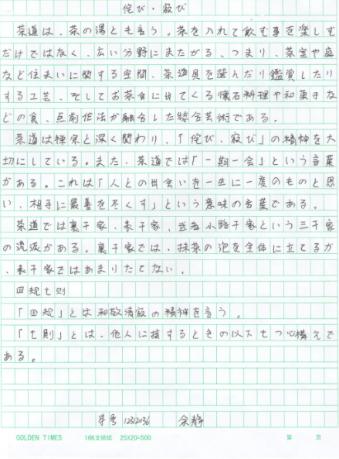 侘び・寂び
茶道は、茶の湯とも言う。茶を入れて飲む事を楽しむ
だけではなく、広い分野にまたがる。つまり、茶室や庭
など住まいに関する空間、茶道具を選んだり鑑賞したり
する工芸、そしてお茶会に出てくる懐石料理や和菓子な
どの食、点前作法が融合した総合芸術である。
茶道は禅宗と深く関わり、「侘び・寂び」の精神を大
切にしている。また、茶道では「一期一会」という言葉
がある。これは「人との出会いを一生に一度のものと思
い、相手に最善を尽くす」という意味の言葉である。
茶道では裏千家、表千家、武者小路千家という三千家
の流派がある。裏千家では、抹茶の泡を全体に立てるが
、表千家ではあまりたてない。
四規七則
「四規」とは和敬清寂の精神を言う。
「七則」とは、他人に接するときの以下七つ心構えで
ある。
学号 余静
GOLDEN TIMES 16K文稿纸 25X20=500 第 页